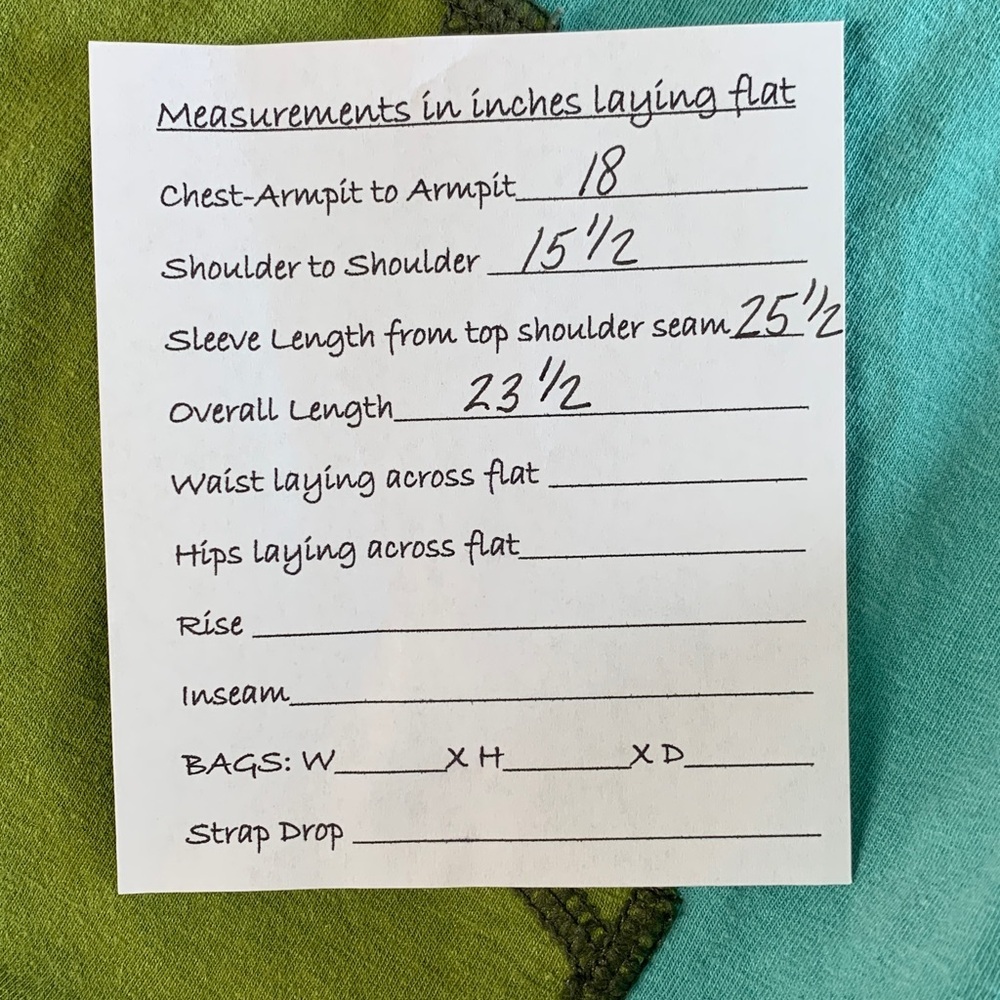 Measurements in inches laying flat
Chest-Armpit to Armpit 18
Shoulder to Shoulder 15 1/2
Sleeve Length from top shoulder seam 25 1/2
Overall Length 23 1/2
Waist laying across flat
Hips laying across flat
Rise
Inseam
BAGS: W______X H______X D______
Strap Drop